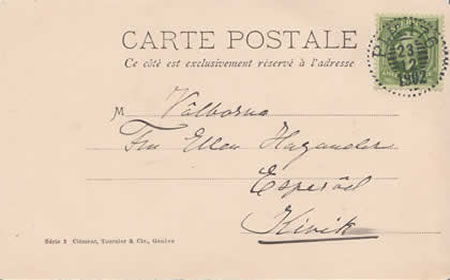 CARTE POSTALE
Ce côté est exclusivement réservé à l'adresse
23
12
1902
M Välborna
Fru Ellen Hagander
Esperöd
Kivik
Série 2 Clément, Tournier & Cie., Genève